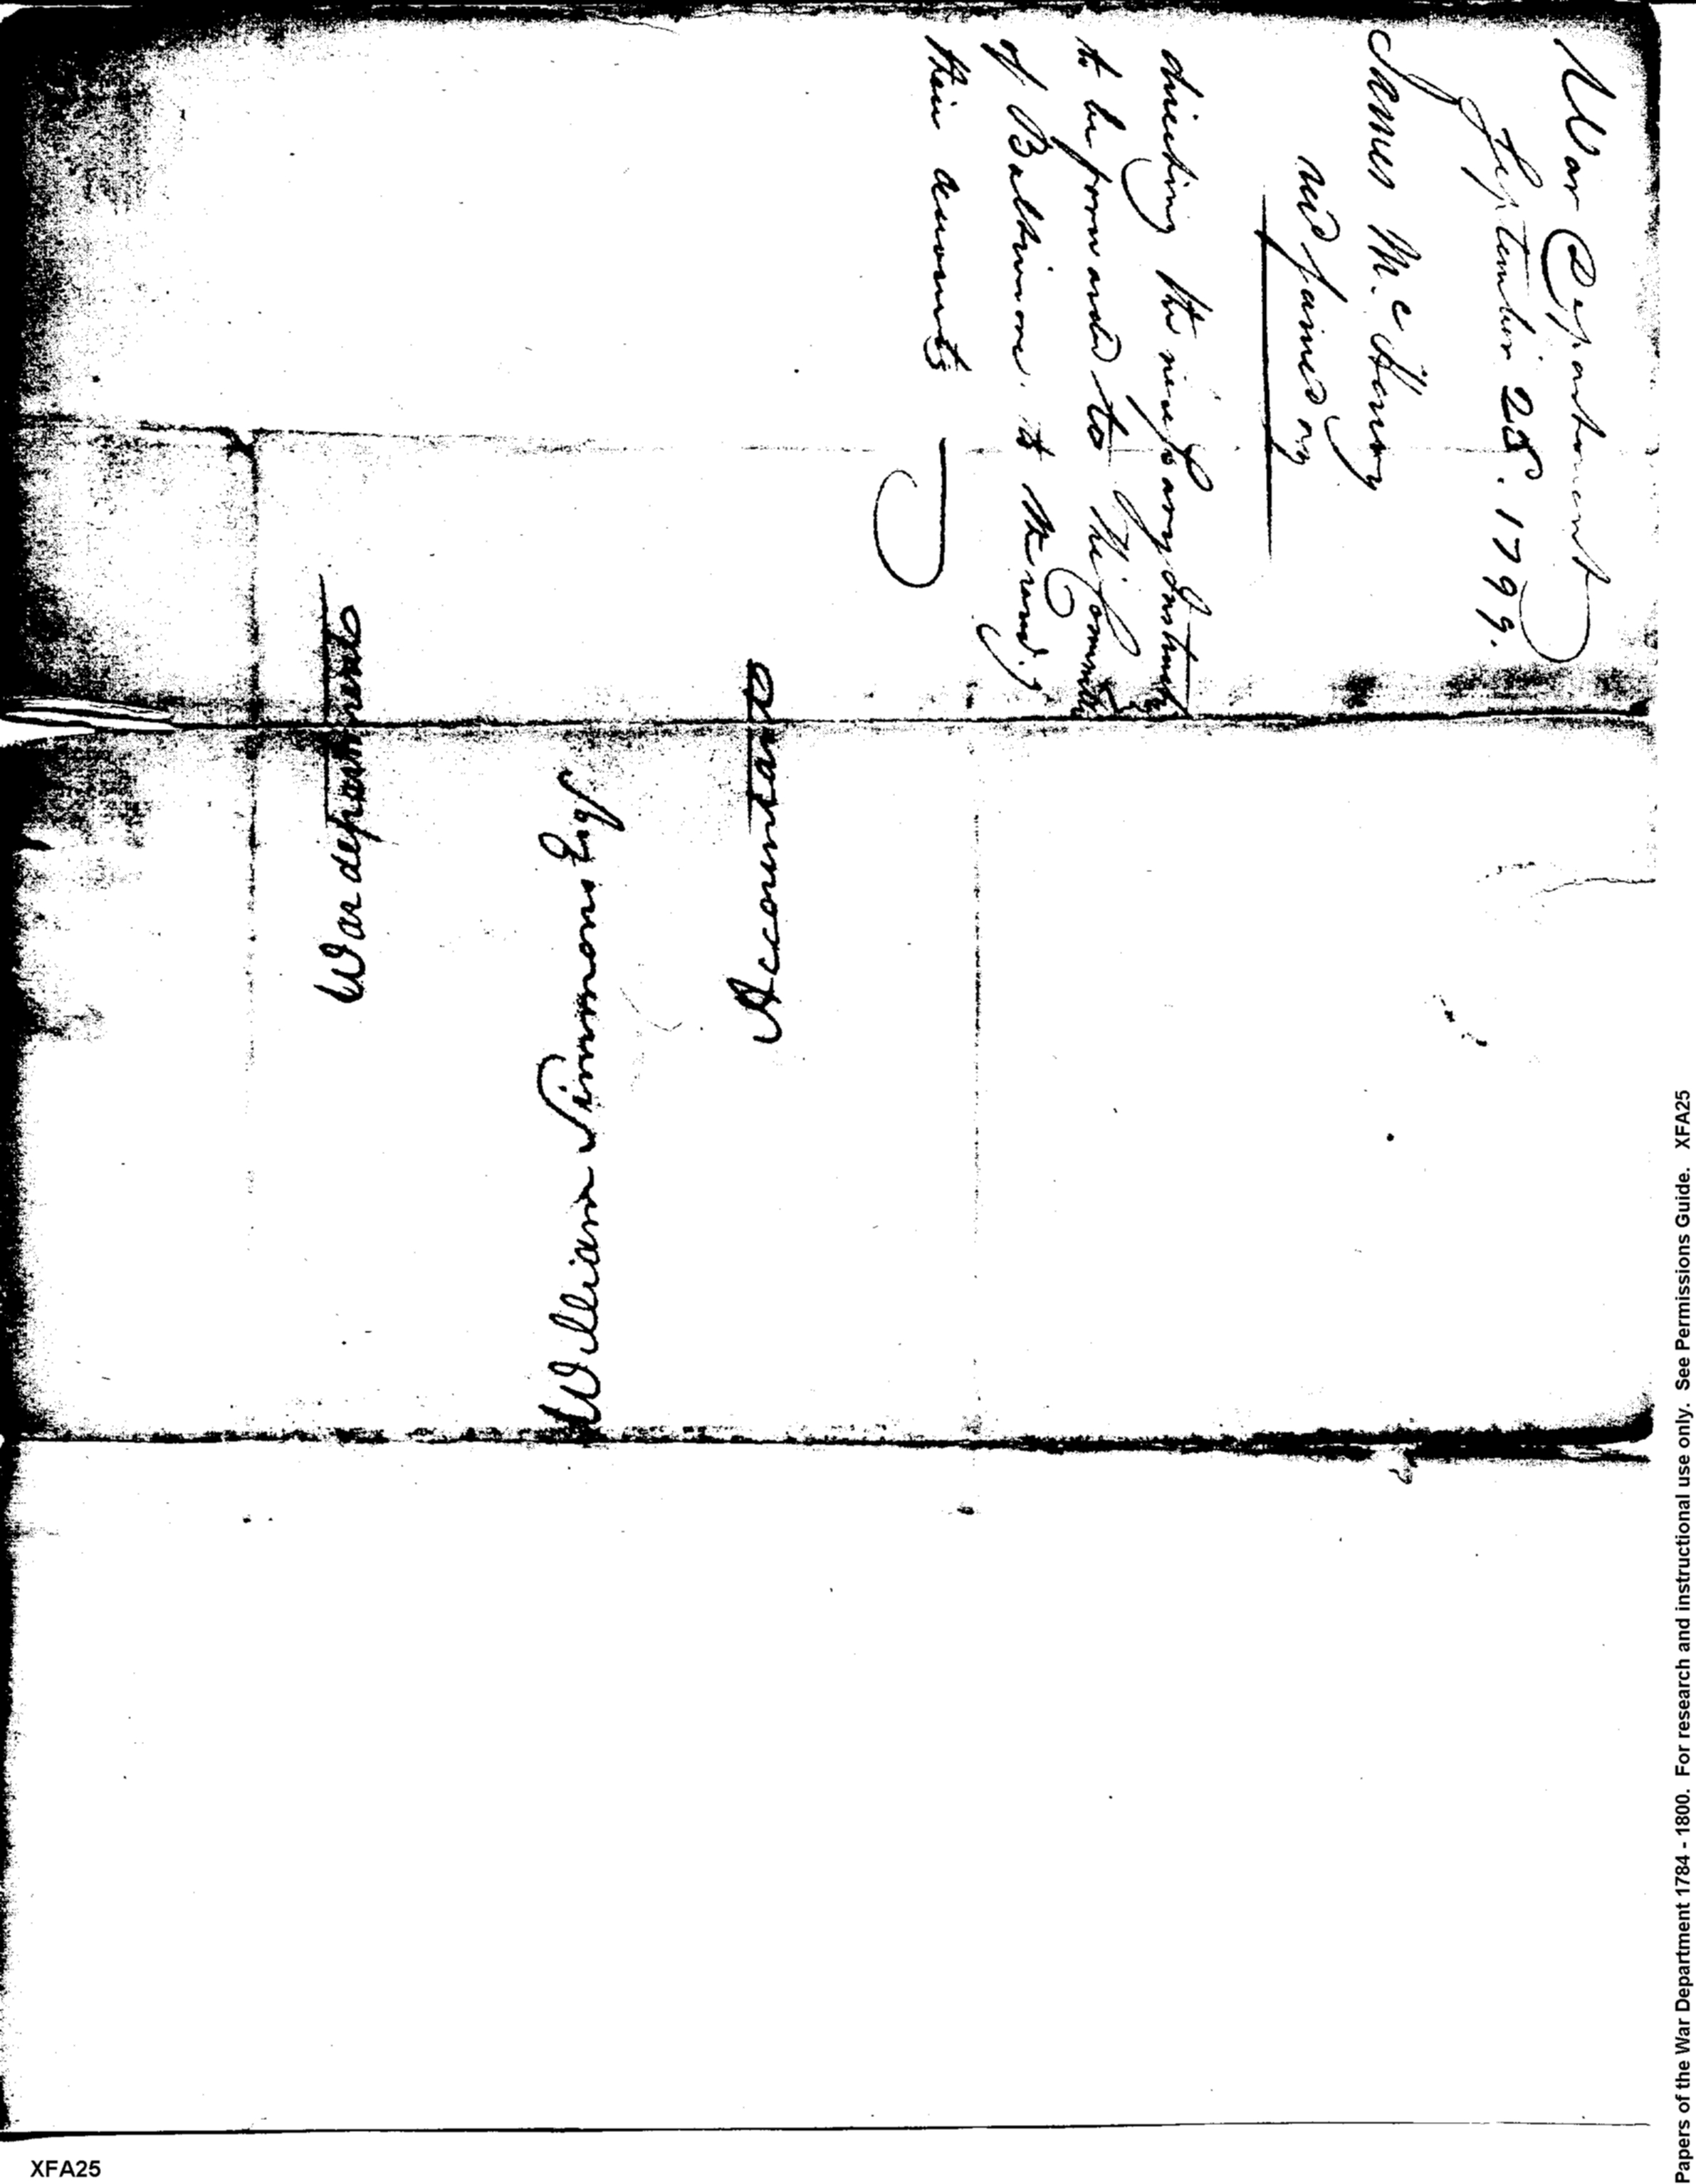 War Department
September 28. 1799.
James McHenry
recd same day
directing the necessary Instruct
to be forwarded to the Committee
of Baltimore. to the rend.g
their accounts
War department
William Simmons Esqr
Accountant
Papers of the War Department 1784 - 1800. For research and instructional use only. See Permissions Guide. XFA25
XFA25